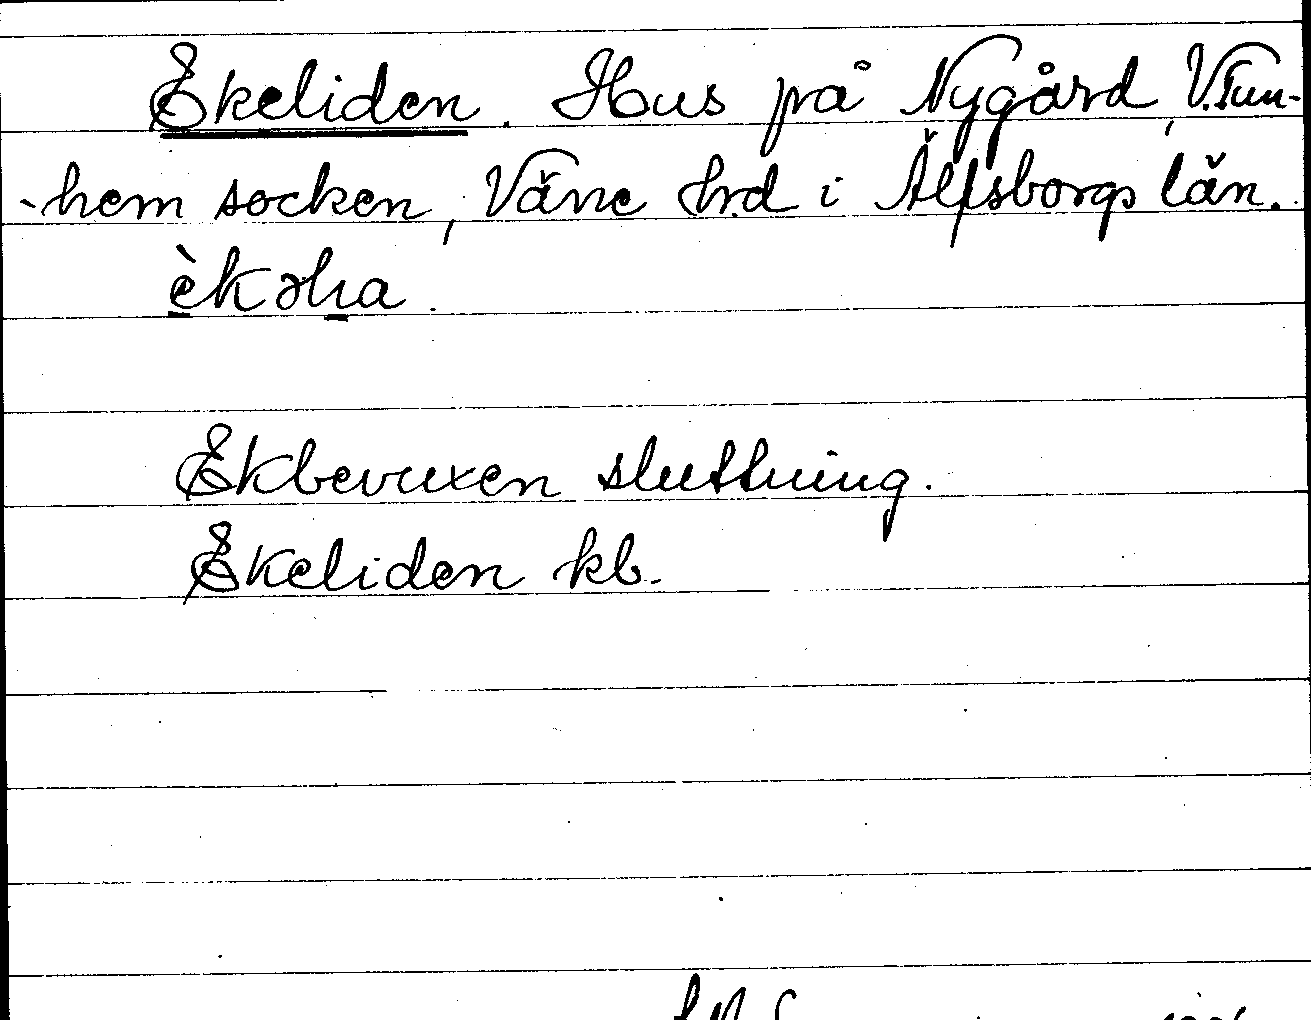 Ekeliden. Hus på Nygård, V.Tun-
-hem socken, Väne hrd i Älfsborgs län.
Ekbevuxen sluttning.
Ekeliden kb.